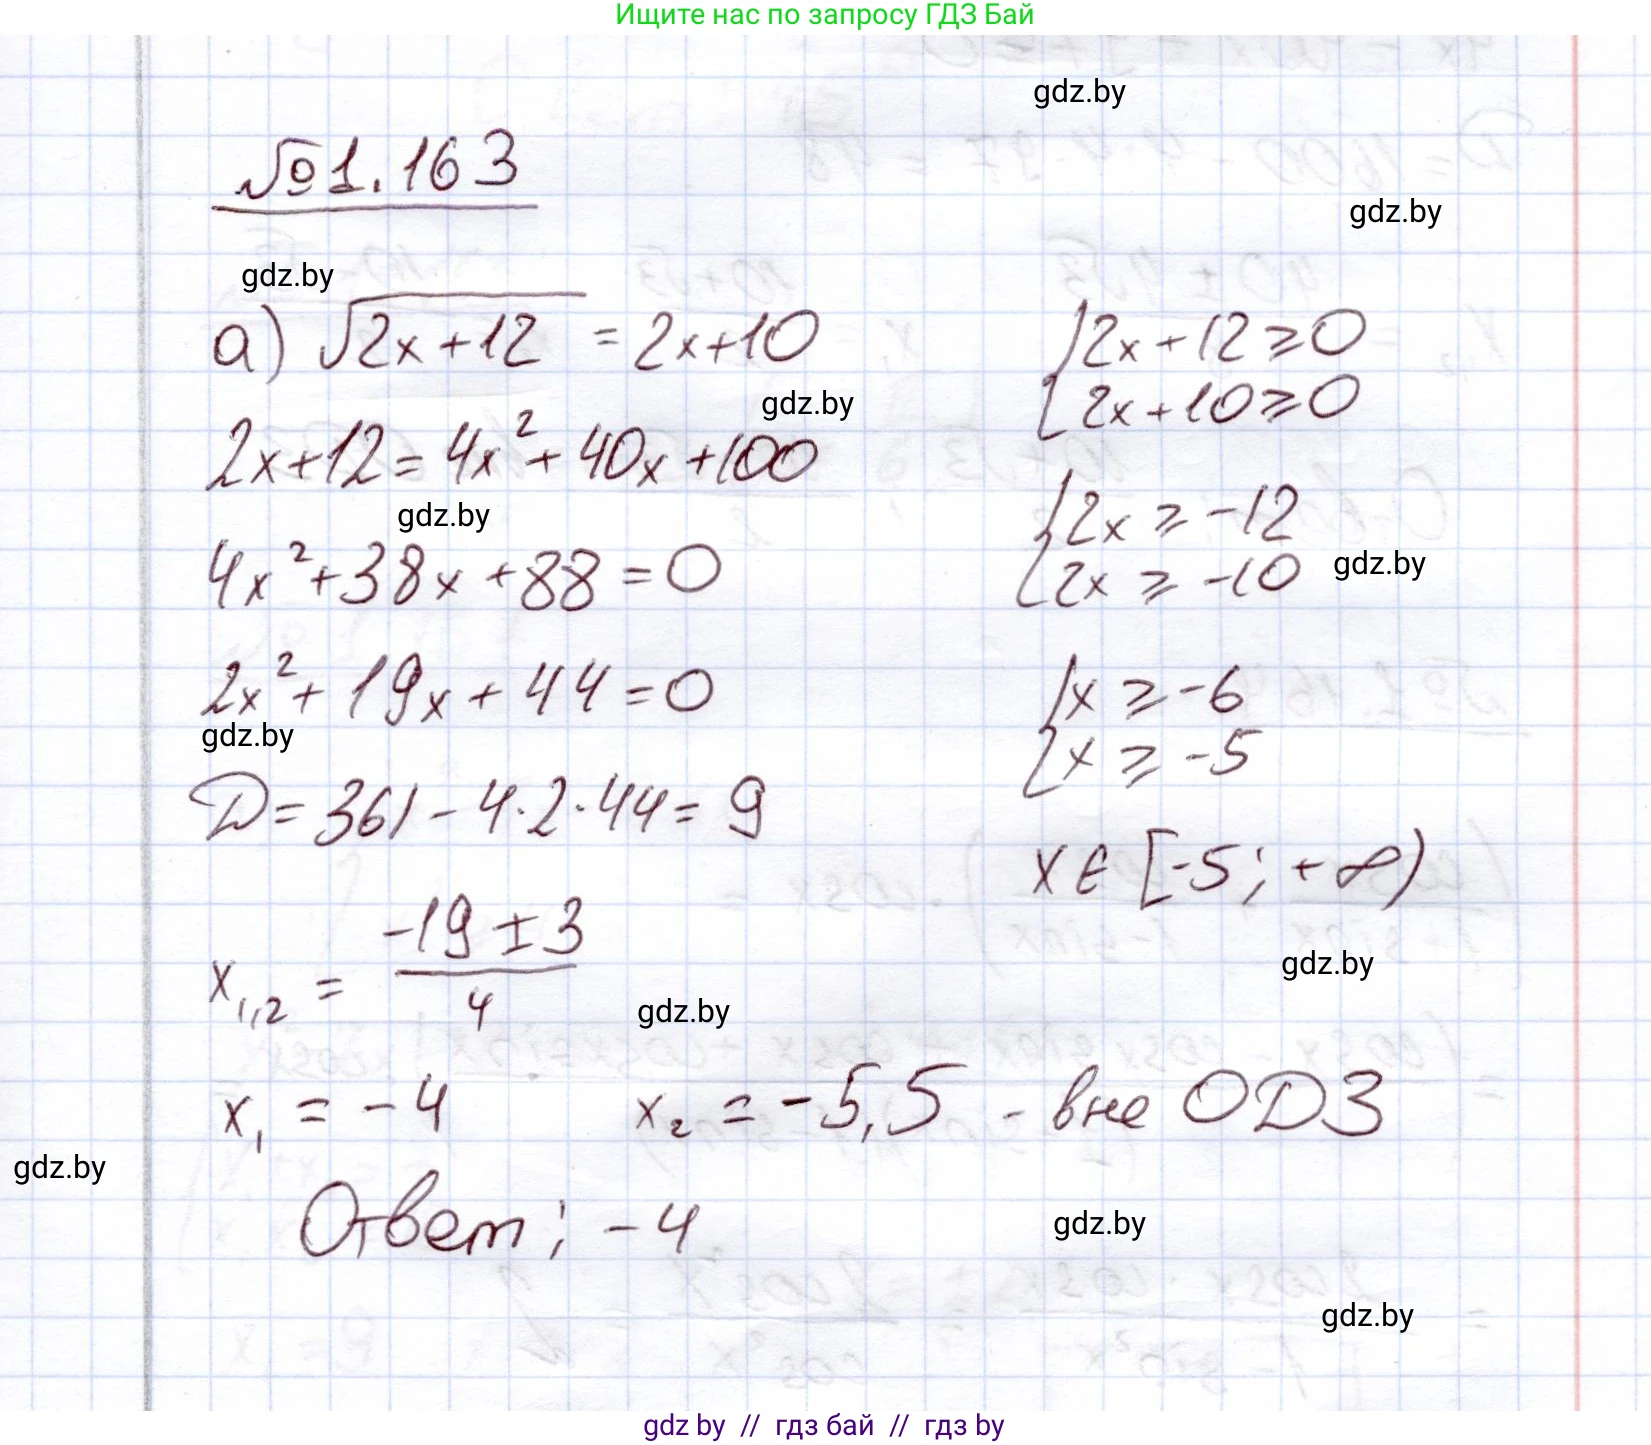 Ищите нас по запросу ГДЗ Бай
gdz.by
№1.163
gdz.by
gdz.by
а) √(2x+12) = 2x+10
{2x+12≥0
2x+10≥0
gdz.by
2x+12=4x²+40x+100
gdz.by
{2x ≥ -12
2x ≥ -10
gdz.by
4x²+38x+88=0
2x²+19x+44=0
{x ≥ -6
x ≥ -5
gdz.by
D=361-4·2·44=9
x∈[-5; +∞)
x₁,₂ = (-19±3)/4
gdz.by
gdz.by
x₁ = -4 x₂ = -5,5 - вне ОДЗ
gdz.by
Ответ; -4
gdz.by
gdz.by
gdz by // гдз бай // гдз by